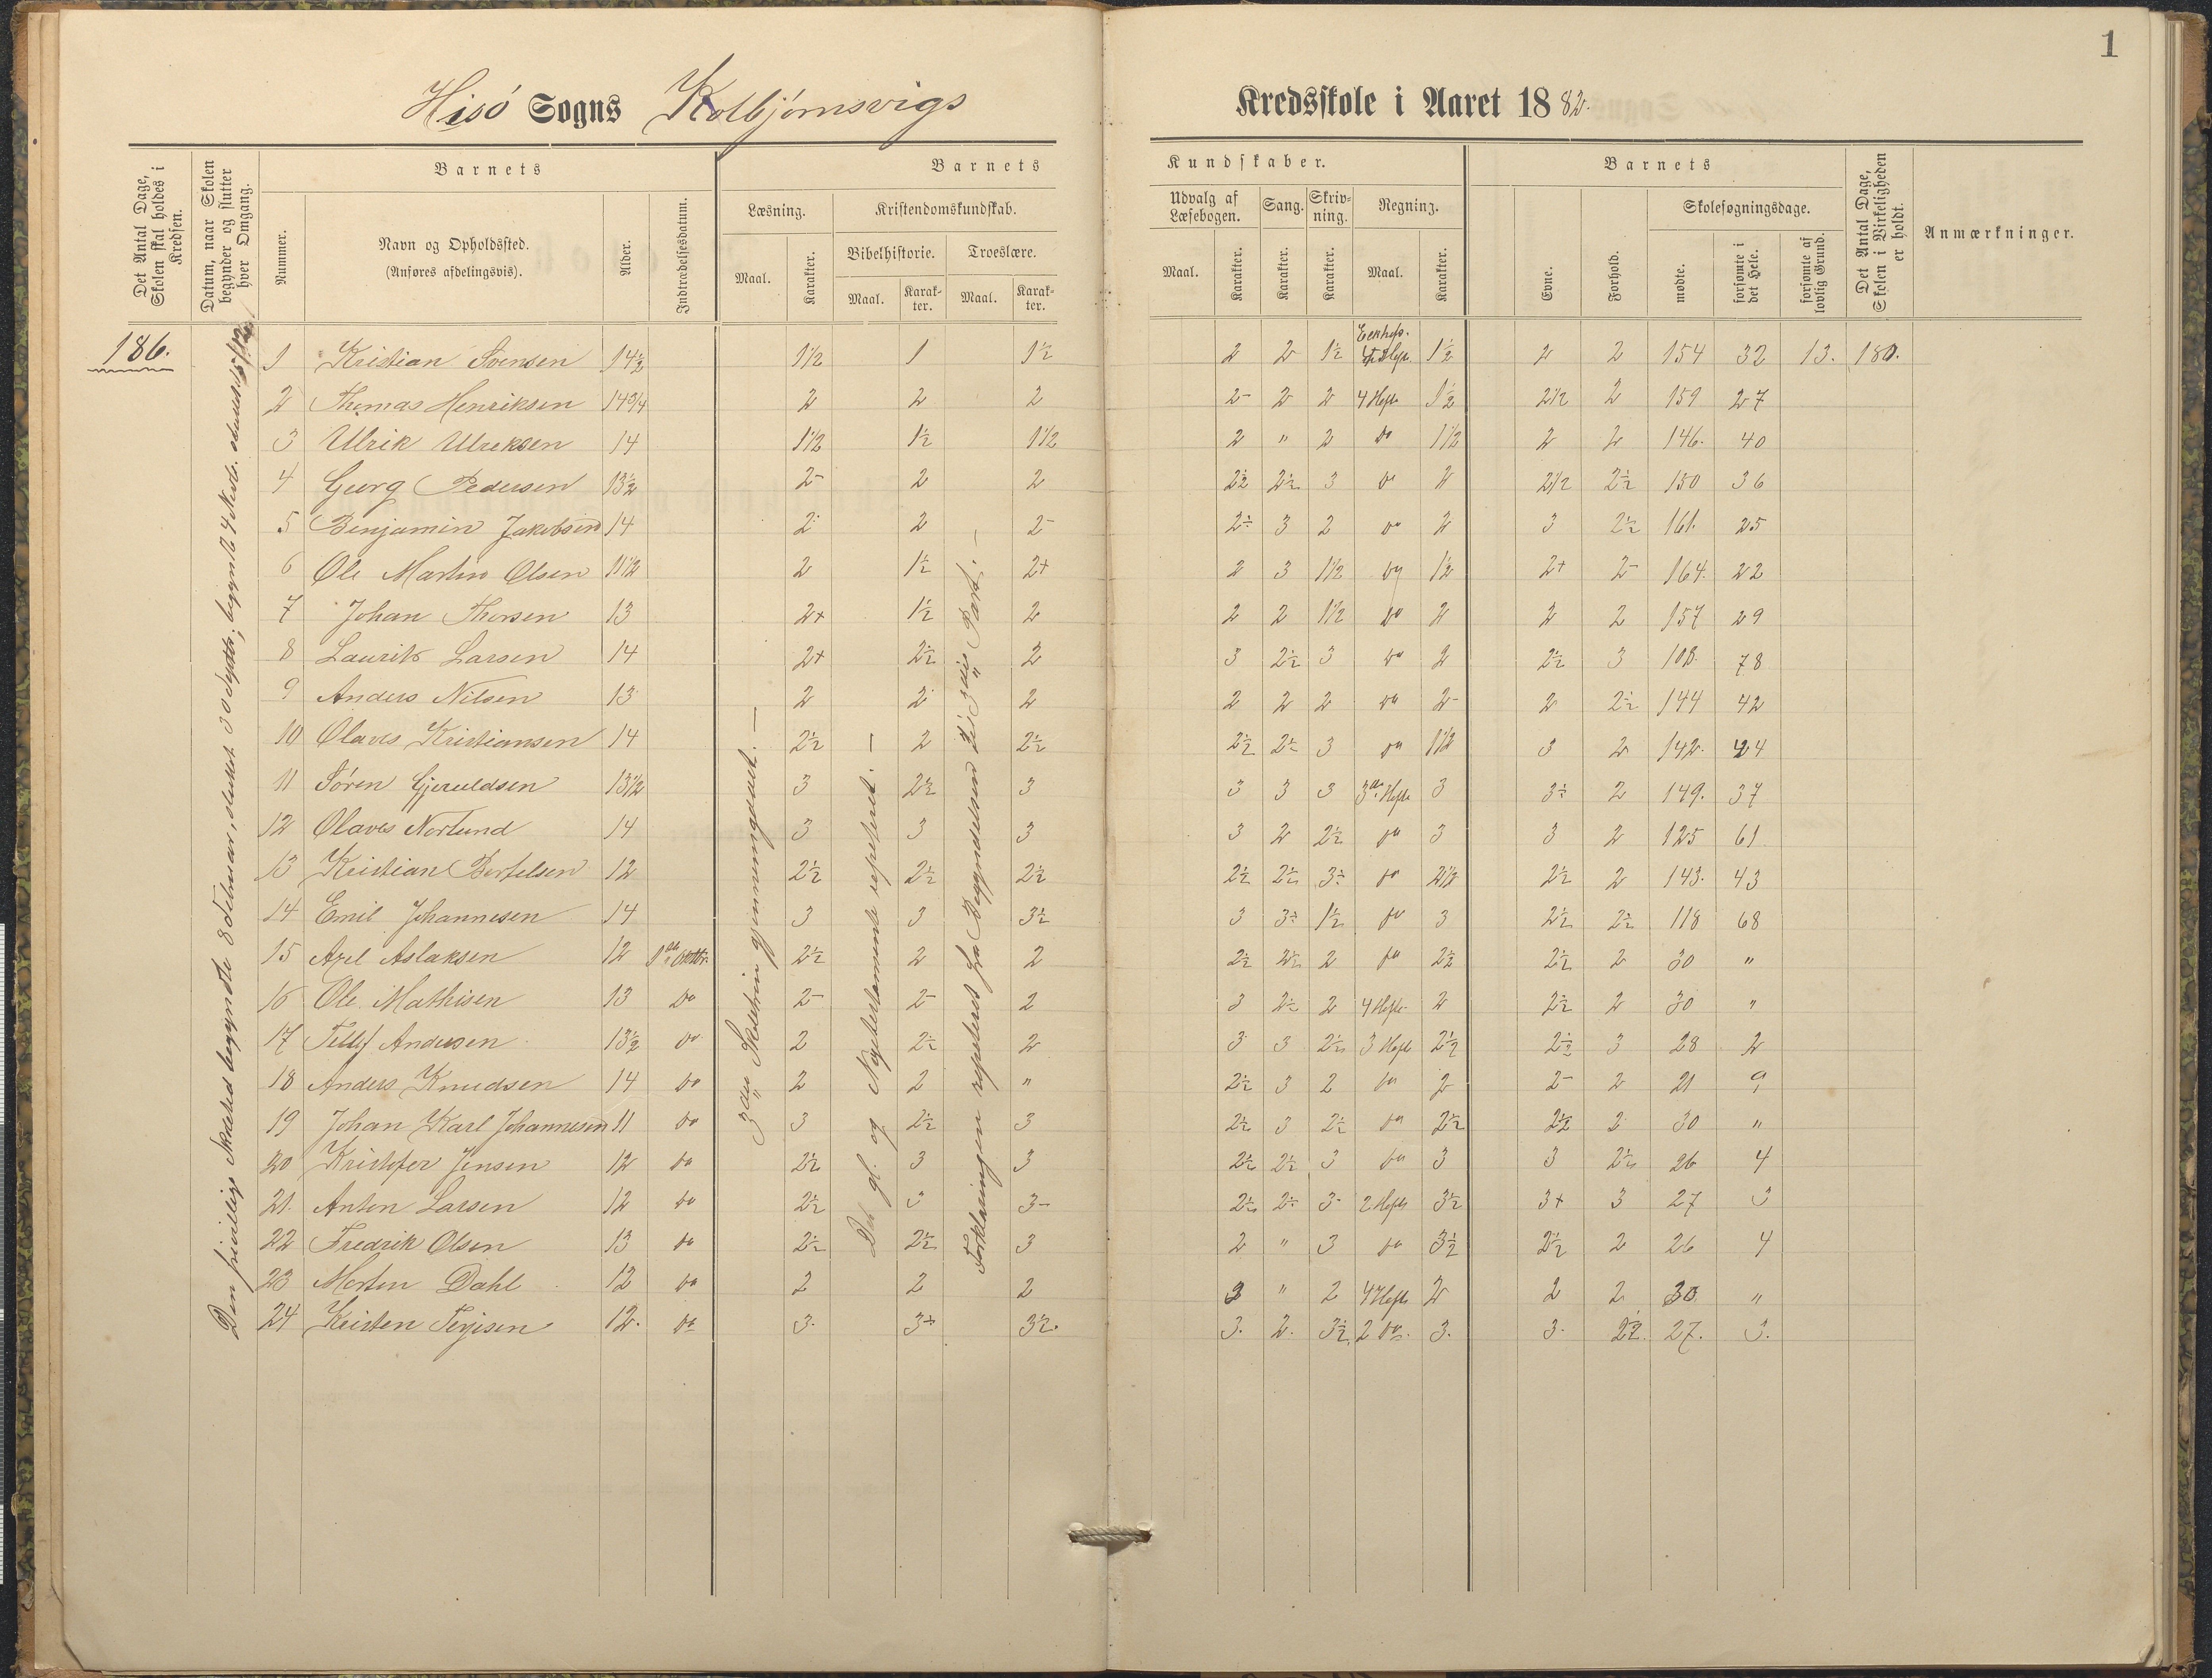 1
Hisö Sogns Kolbjörnsvigs Kredsskole i Aaret 1882.
Det Antal Dage, Skolen skal holdes i Kredsen.
Datum, naar Skolen begynder og slutter hver Omgang.
Barnets
Nummer.
Navn og Opholdssted.
(Anføres afdelingsvis).
Alder.
Indtrædelsesdatum.
Barnets Kundskaber.
Læsning.
Maal.
Karakter.
Kristendomskundskab.
Bibelhistorie.
Maal.
Karakter.
Troeslære.
Maal.
Karakter.
Udvalg af Læsebogen.
Maal.
Karakter.
Sang.
Karakter.
Skrivning.
Karakter.
Regning.
Maal.
Karakter.
Barnets
Evne.
Forhold.
Skolesøgningsdage.
mødte.
forsømte i det Hele.
forsømte af lovlig Grund.
Det Antal Dage, Skolen i Virkeligheden er holdt.
Anmærkninger.
186.
1 Kristian Svensen 14½ 1½ 1 1½ 2 2 1½ 1½ 2 2 154 32 13. 180.
2 Thomas Henriksen 14¾ 2 2 2 2- 2 2 4 Hefte 1½ 2½ 2 159 27
3 Ulrik Ulreksen 14 1½ 1½ 1½ 2 " 2 do 1½ 2 2 146. 40
4 Georg Pedersen 13½ 2- 2 2 2½ 2½ 3 do 2 2½ 2½ 150 36
5 Benjamin Jakobsen 14 2 2 2- 2÷ 3 2 do 2 3 2½ 161. 25
6 Ole Martin Olsen 11½ 2 1½ 2+ 2 3 1½ do 1½ 2+ 2- 164. 22
7 Johan Thorsen 13 2+ 1½ 2 2 2 1½ do 2 2 2 157 29
8 Laurits Larsen 14 2+ 2½ 2 3 2½ 3 do 2 2½ 3 108. 78
9 Anders Nilsen 13 2 2 2 2 2 2 do 2- 2 2½ 144 42
10 Olaves Kristiansen 14 2½ 2 2½ 2½ 2÷ 3 do 1½ 3 2 142. 44
11 Sören Gjeruldsen 13½ 3 2½ 3 3 3 3 3die Hefte 3 3÷ 2 149. 37
12 Olaves Norlund 14 3 3 3 3 2 2½ do 3 3 2 125 61
13 Kristian Bertelsen 12 2½ 2½ 2½ 2½ 2½ 3÷ do 2½ 2½ 2 143. 43
14 Emil Johannesen 14 3 3 3½ 3 3÷ 1½ do 3 2½ 2½ 118 68
15 Axel Aslaksen 12 2½ 2 2 2½ 2½ 2 do 2½ 2½ 2 30 "
16 Ole Mathisen 13 do 2- 2- 2 3 2½ 2 4 Hefte 2 2½ 2 30 "
17 Tellef Andersen 13½ do 2 2½ 2 3 3 2½ 3 Hefte 2½ 2½ 3 28 2
18 Anders Knudsen 14 do 2 2 " 2½ 3 2 do 2 2- 2 21 9
19 Johan Karl Johannesen 11 do 3 2½ 3 2½ 3 2½ do 2½ 2½ 2 30 "
20 Kristofer Jensen 12 do 2½ 3 3 2½ 2½ 3 do 3 3 2½ 26 4
21. Anton Larsen 12 do 2½ 3 3- 2½ 2÷ 3- 2 Hefte 3½ 3+ 3 27 3
22 Fredrik Olsen 13 do 2½ 2½ 3 2 " 3 do 3½ 2½ 2 26 4
23 Morten Dahl 12 do 2 2 2 3 " 2 4 Hefte 2 2 2 30 "
24 Kristen Terjesen 12. do 3. 3+ 3½. 3. 2. 3½ 2 do. 3. 3. 2½. 27. 3.
3die Skoletrin gjennemgaaet. —
Det gl. og Nyetestamente repeteret. —
Forklaringen repeteret fra Begyndelsen til 3die Part. —